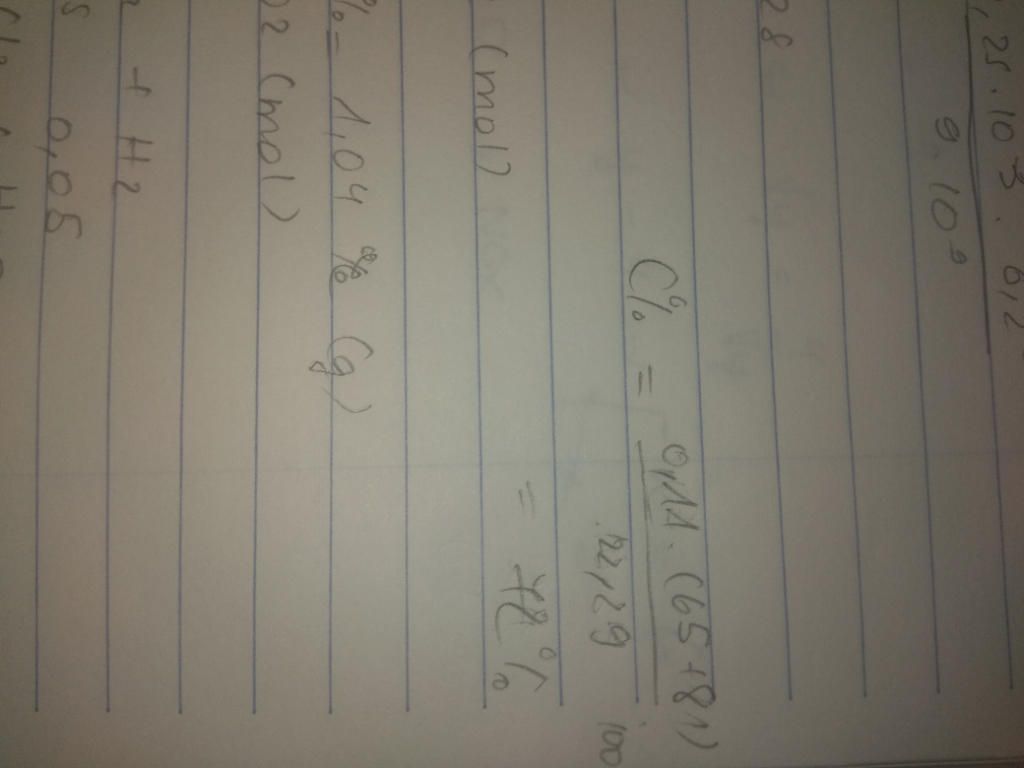 ,25.10³. 0,2
9.10⁹
28
C% = 0,11.(65+81)
12,29 .100
(mol)
= 72%
%= 1,04 % (g)
02 (mol)
+ H2
0,05